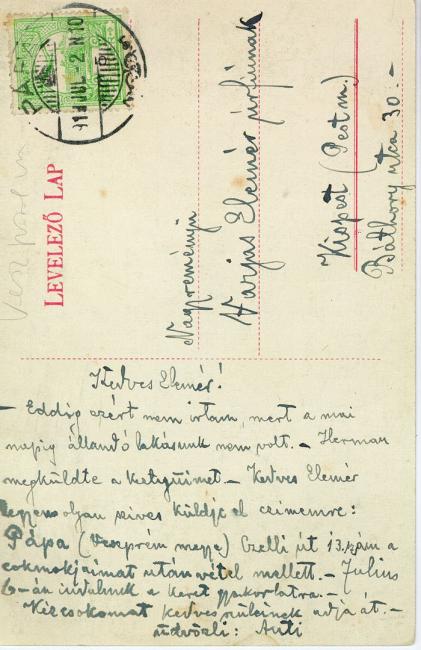 PÁPA
911 JUL 2 N 10
Veszprém
LEVELEZŐ LAP
Nagyreményű
Vargas Elemér úrfiúnak
Kispest (Pestm.)
Báthory utca 30.-
Kedves Elemér!
- Eddig azért nem irtam, mert a mai
napig állandó lakásunk nem volt.- Herman
megküldte a kutyúimet.- Kedves Elemér
legyen olyan szives küldje el czimemre:
Pápa (Veszprém megye) Czelli út 13. szám a
után vétel mellett.- Julius
6-án indulunk a keret gyakorlatra.-
Kézcsókomat kedves szüleinek adja át.-
üdvözli: Anti